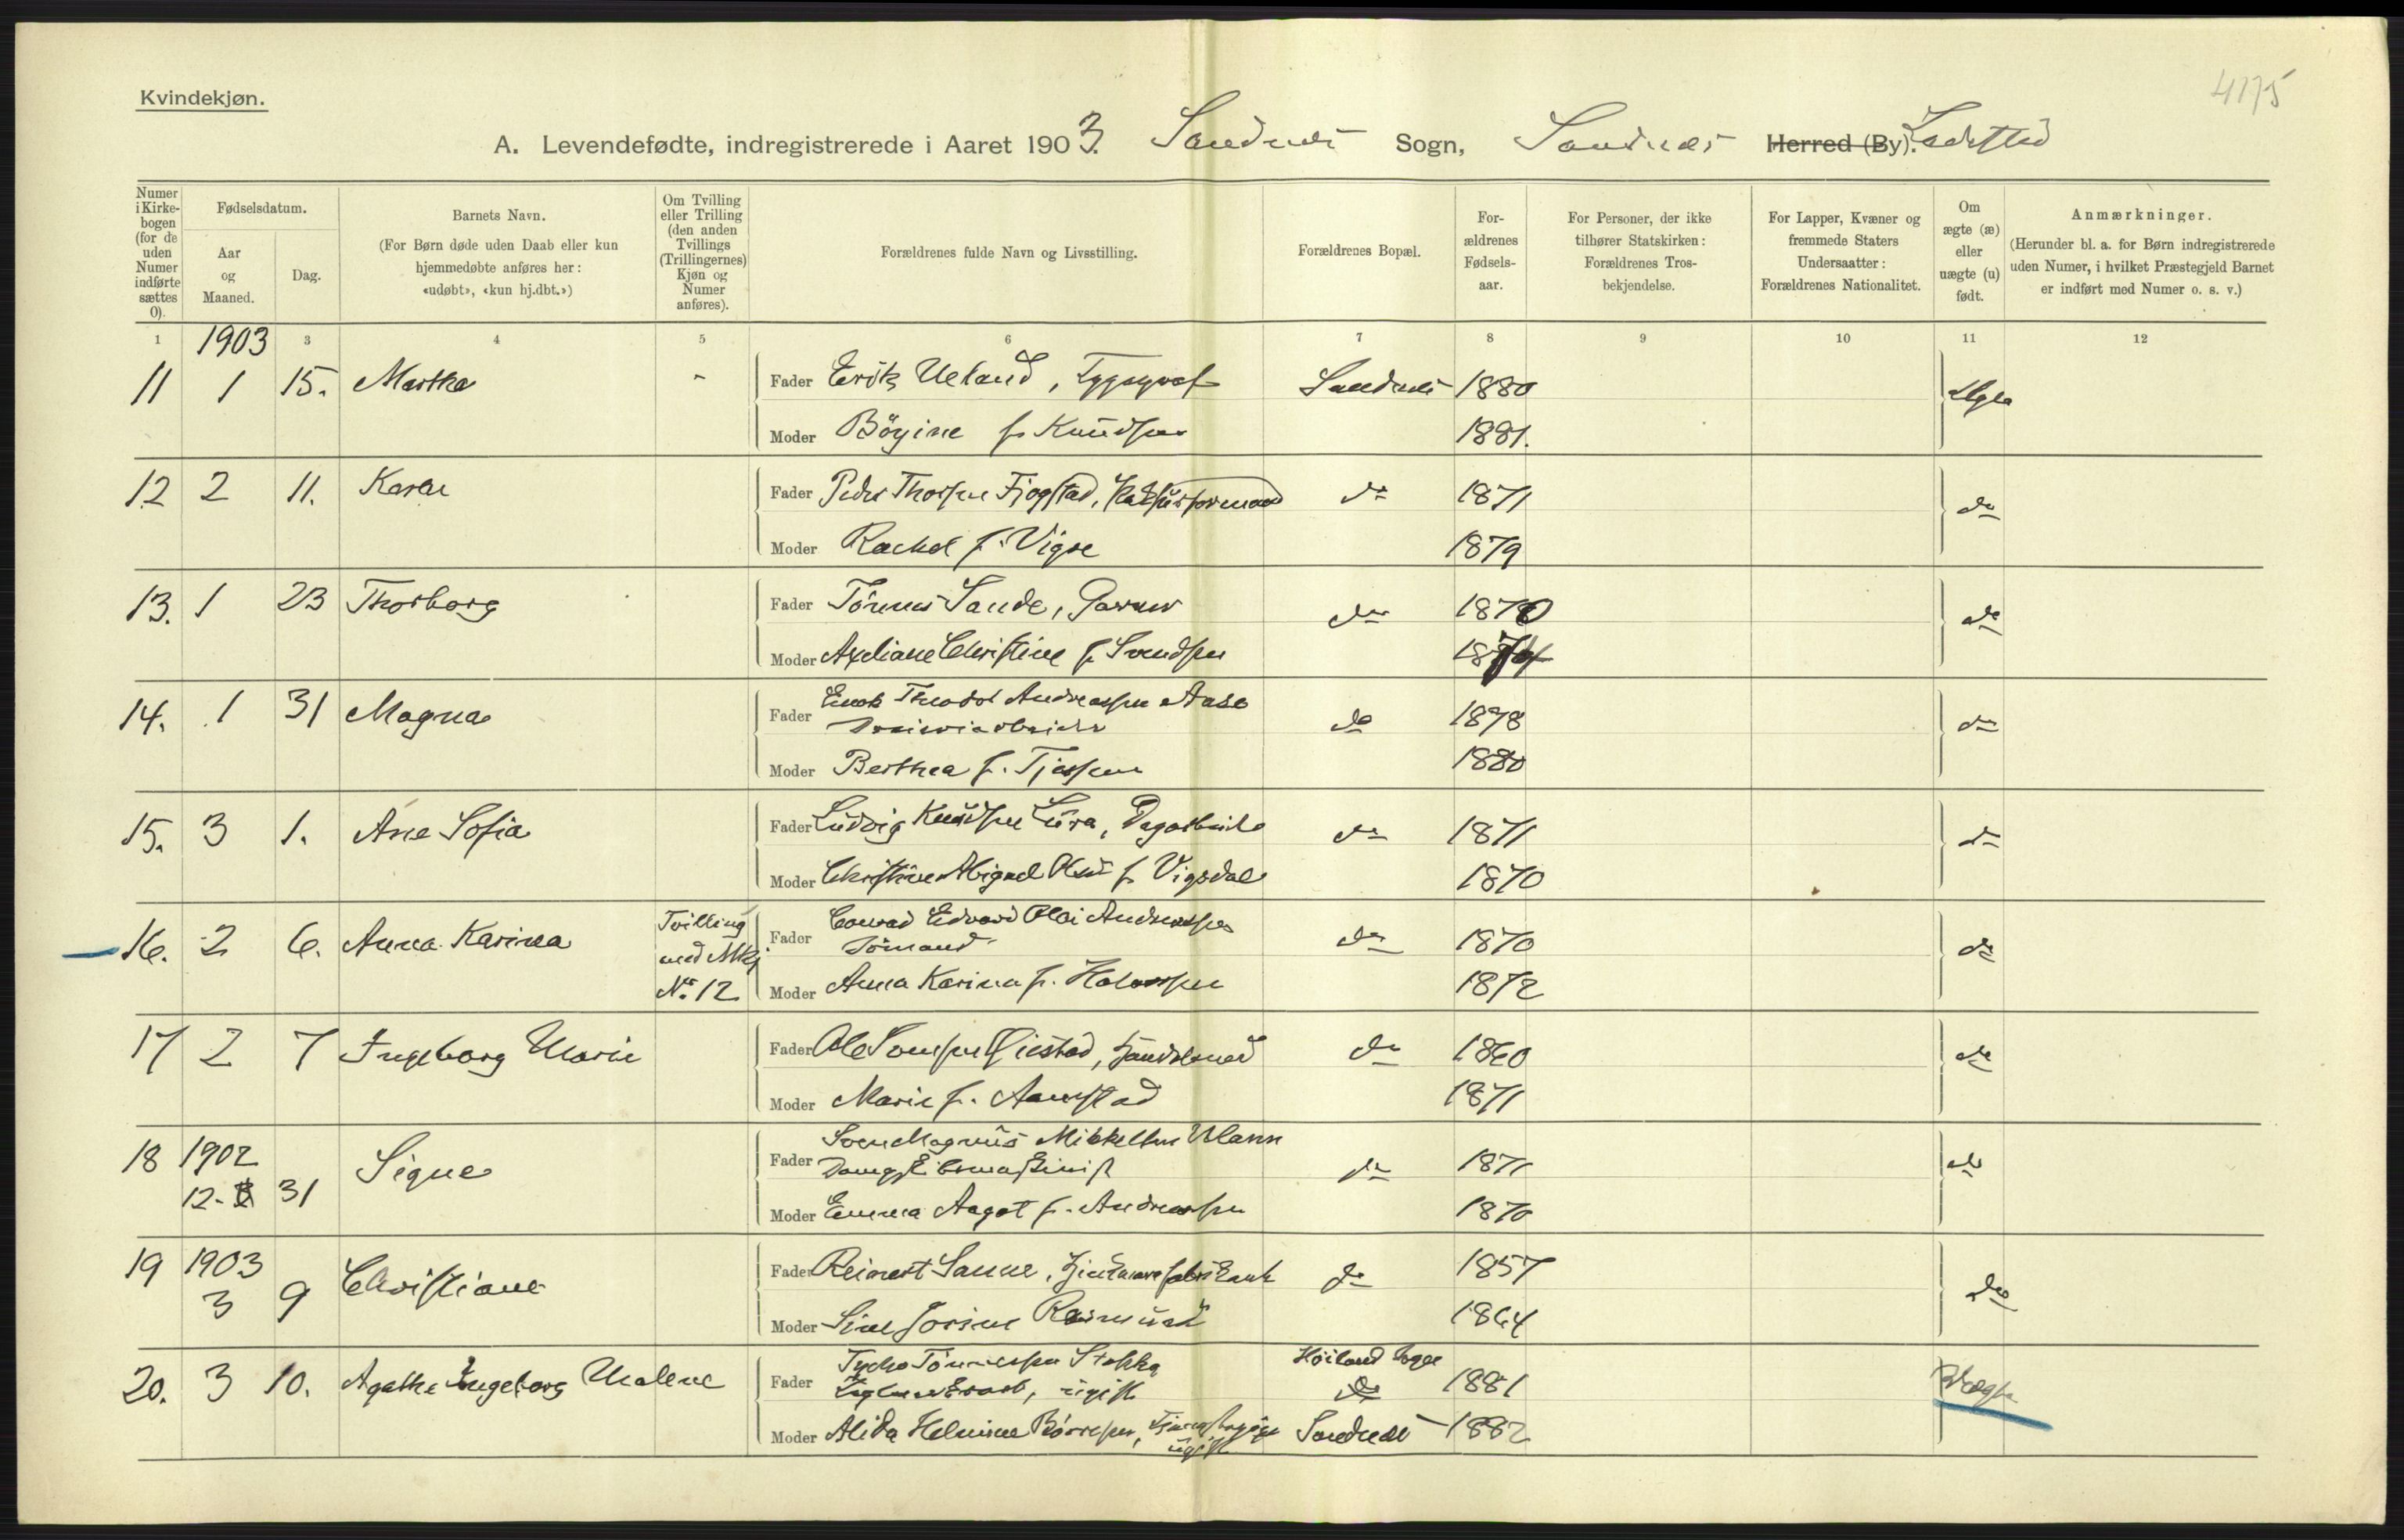 Kvindekjøn.
4175
A. Levendefødte, indregistrerede i Aaret 1903. Sandnes Sogn, Sandnes Herred (By). Ladested
Numer i Kirkebogen (for de uden Numer indførte sættes 0).
Fødselsdatum.
Aar og Maaned.
Dag.
Barnets Navn.
(For Børn døde uden Daab eller kun hjemmedøbte anføres her: «udøbt», «kun hj.dbt.»)
Om Tvilling eller Trilling (den anden Tvillings (Trillingernes) Kjøn og Numer anføres).
Forældrenes fulde Navn og Livsstilling.
Forældrenes Bopæl.
Forældrenes Fødselsaar.
For Personer, der ikke tilhører Statskirken: Forældrenes Trosbekjendelse.
For Lapper, Kvæner og fremmede Staters Undersaatter: Forældrenes Nationalitet.
Om ægte (æ) eller uægte (u) født.
Anmærkninger.
(Herunder bl. a. for Børn indregistrerede uden Numer, i hvilket Præstegjeld Barnet er indført med Numer o. s. v.)
1 1903 3 4 5 6 7 8 9 10 11 12
11 1 15. Martha - Fader Erik Ueland, Sandnes 1880 Ægte
Moder Bögine f. Knudsen 1881.
12 2 11. Karen Fader Peder Thorsen Fjogstad, do 1871 do
Moder Rachel f. Vigre 1879
13. 1 23 Thorborg Fader Tönnes Sande, Garver do 1870 do
Moder Axeliane Christine f. Svendsen 1874
14. 1 31 Magna Fader Enok Theodor Andreassen Aase
do 1878 do
Moder Berthea f. Tjessem 1880
15. 3 1. Ane Sofia Fader Ludvig Knudsen Lura, Dagarbeider do 1871 do
Moder Christine Abigael Olsd f. Vigsdal 1870
16. 2 6. Anna Karina Tvilling med Mkj No. 12 Fader Conrad Edvard Olai Andreassen
Sömand do 1870 do
Moder Anna Karina f. Halvorsen 1872
17 2 7 Ingeborg Marie Fader Ole Svensen Gjestad, Handelsmand do 1860 do
Moder Marie f. Aamstad 1871
18 1902 12- 31 Signe Fader Sven Magnus Mikkelsen
do 1871 do
Moder Emma Aagot f. Andreassen 1870
19 1903 3 9 Christiane Fader Reinert Sanne, do 1857 do
Moder Sine Jorine Rasmusd 1864
20. 3 10. Agathe Ingeborg Malene Fader Tycho Tönnessen Stokka
Teglverksarb, ugift Höiland Sogn do 1881 Uægte
Moder Alida Helmine Börresen, Tjenestepige ugift Sandnes 1882